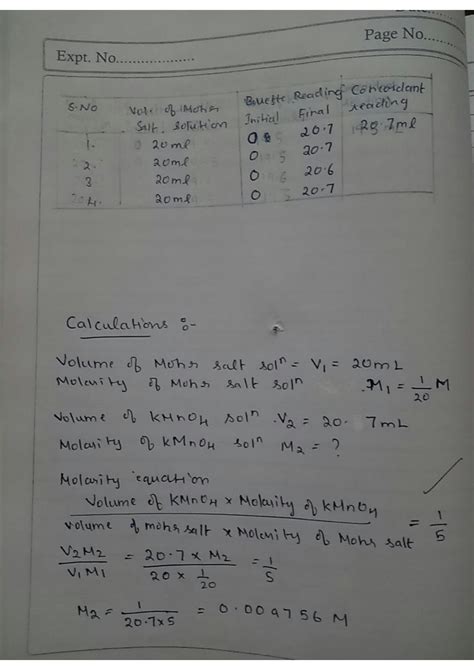 Page No......
Expt. No...................
S.No Vol. of Mohr Salt solution Burette Reading Initial Final Concordant reading
1. 20ml 0 20.7 20.7ml
2. 20ml 0 20.7
3 20ml 0 20.6
4. 20ml 0 20.7
Calculations :-
Volume of Mohr salt solⁿ = V₁ = 20mL
Molarity of Mohr salt solⁿ M₁ = 1/20 M
Volume of KMnO4 solⁿ V₂ = 20.7mL
Molarity of KMnO4 solⁿ M₂ = ?
Molarity equation
Volume of KMnO4 x Molarity of KMnO4 / volume of mohr salt x Molarity of Mohr salt = 1/5
V₂M₂ / V₁M₁ = 20.7 x M₂ / 20 x 1/20 = 1/5
M₂ = 1 / 20.7x5 = 0.009756 M